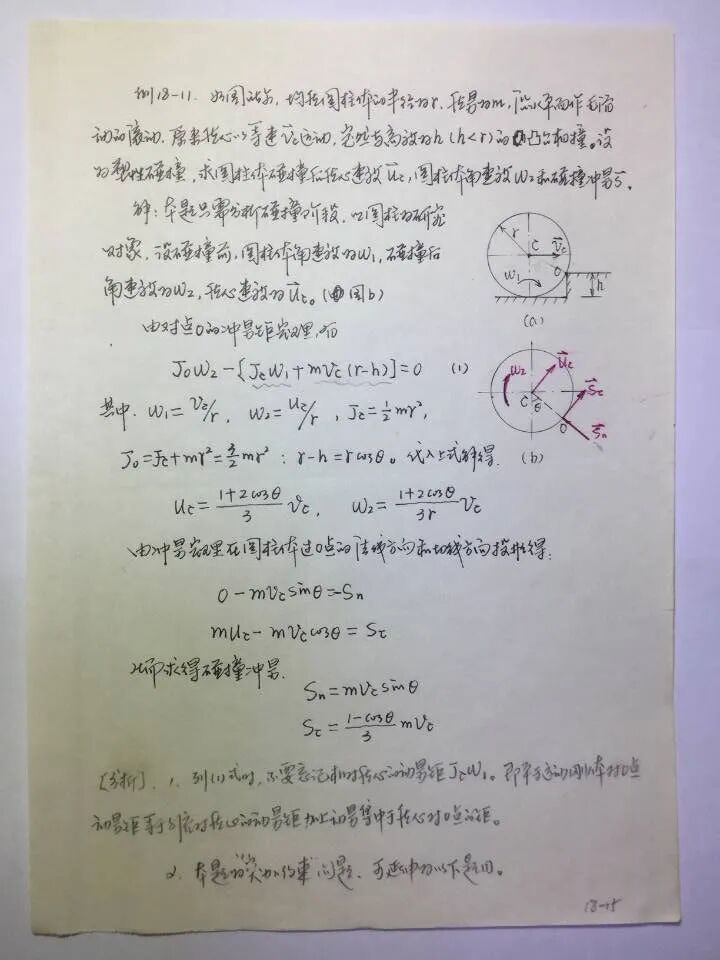 例18-11. 如图所示, 均质圆柱体的半径为r, 质量为m, 沿水平面作无滑
动的滚动. 原来质心以等速v̄c运动, 突然与高为h (h<r) 的凸台相撞。设
为塑性碰撞, 求圆柱体碰撞后质心速度ūc, 圆柱体角速度ω2和碰撞冲量s̄.
解: 本题只需分析碰撞阶段, 以圆柱为研究
对象, 设碰撞前, 圆柱体角速度为ω1, 碰撞后
角速度为ω2, 质心速度为ūc。(图b)
由对点O的冲量矩定理, 有
JOω2-[Jcω1+mvc(r-h)]=0 (1)
其中. ω1=vc/r, ω2=uc/r, Jc=½mr²,
JO=Jc+mr²=3/2mr²; r-h=rcosθ。代入上式解得.
uc=(1+2cosθ)/3 vc, ω2=(1+2cosθ)/3r vc
由冲量定理在圆柱体过O点的法线方向和切线方向投影得:
0-mvcsinθ=-Sn
muc-mvccosθ=Sτ
从而求得碰撞冲量.
Sn=mvcsinθ
Sτ=(1-cosθ)/3 mvc
[分析]. 1. 列(1)式时, 不要忘记相对质心的动量矩Jcω1。即平面运动刚体对O点
动量矩等于刚体对质心的动量矩加上动量集中于质心对O点的矩。
2. 本题为突加约束问题. 可延伸为以下题目。
18-15
r
C
v̄c
O
ω1
h
(a)
ω2
ūc
C
θ
S̄τ
O
S̄n
(b)